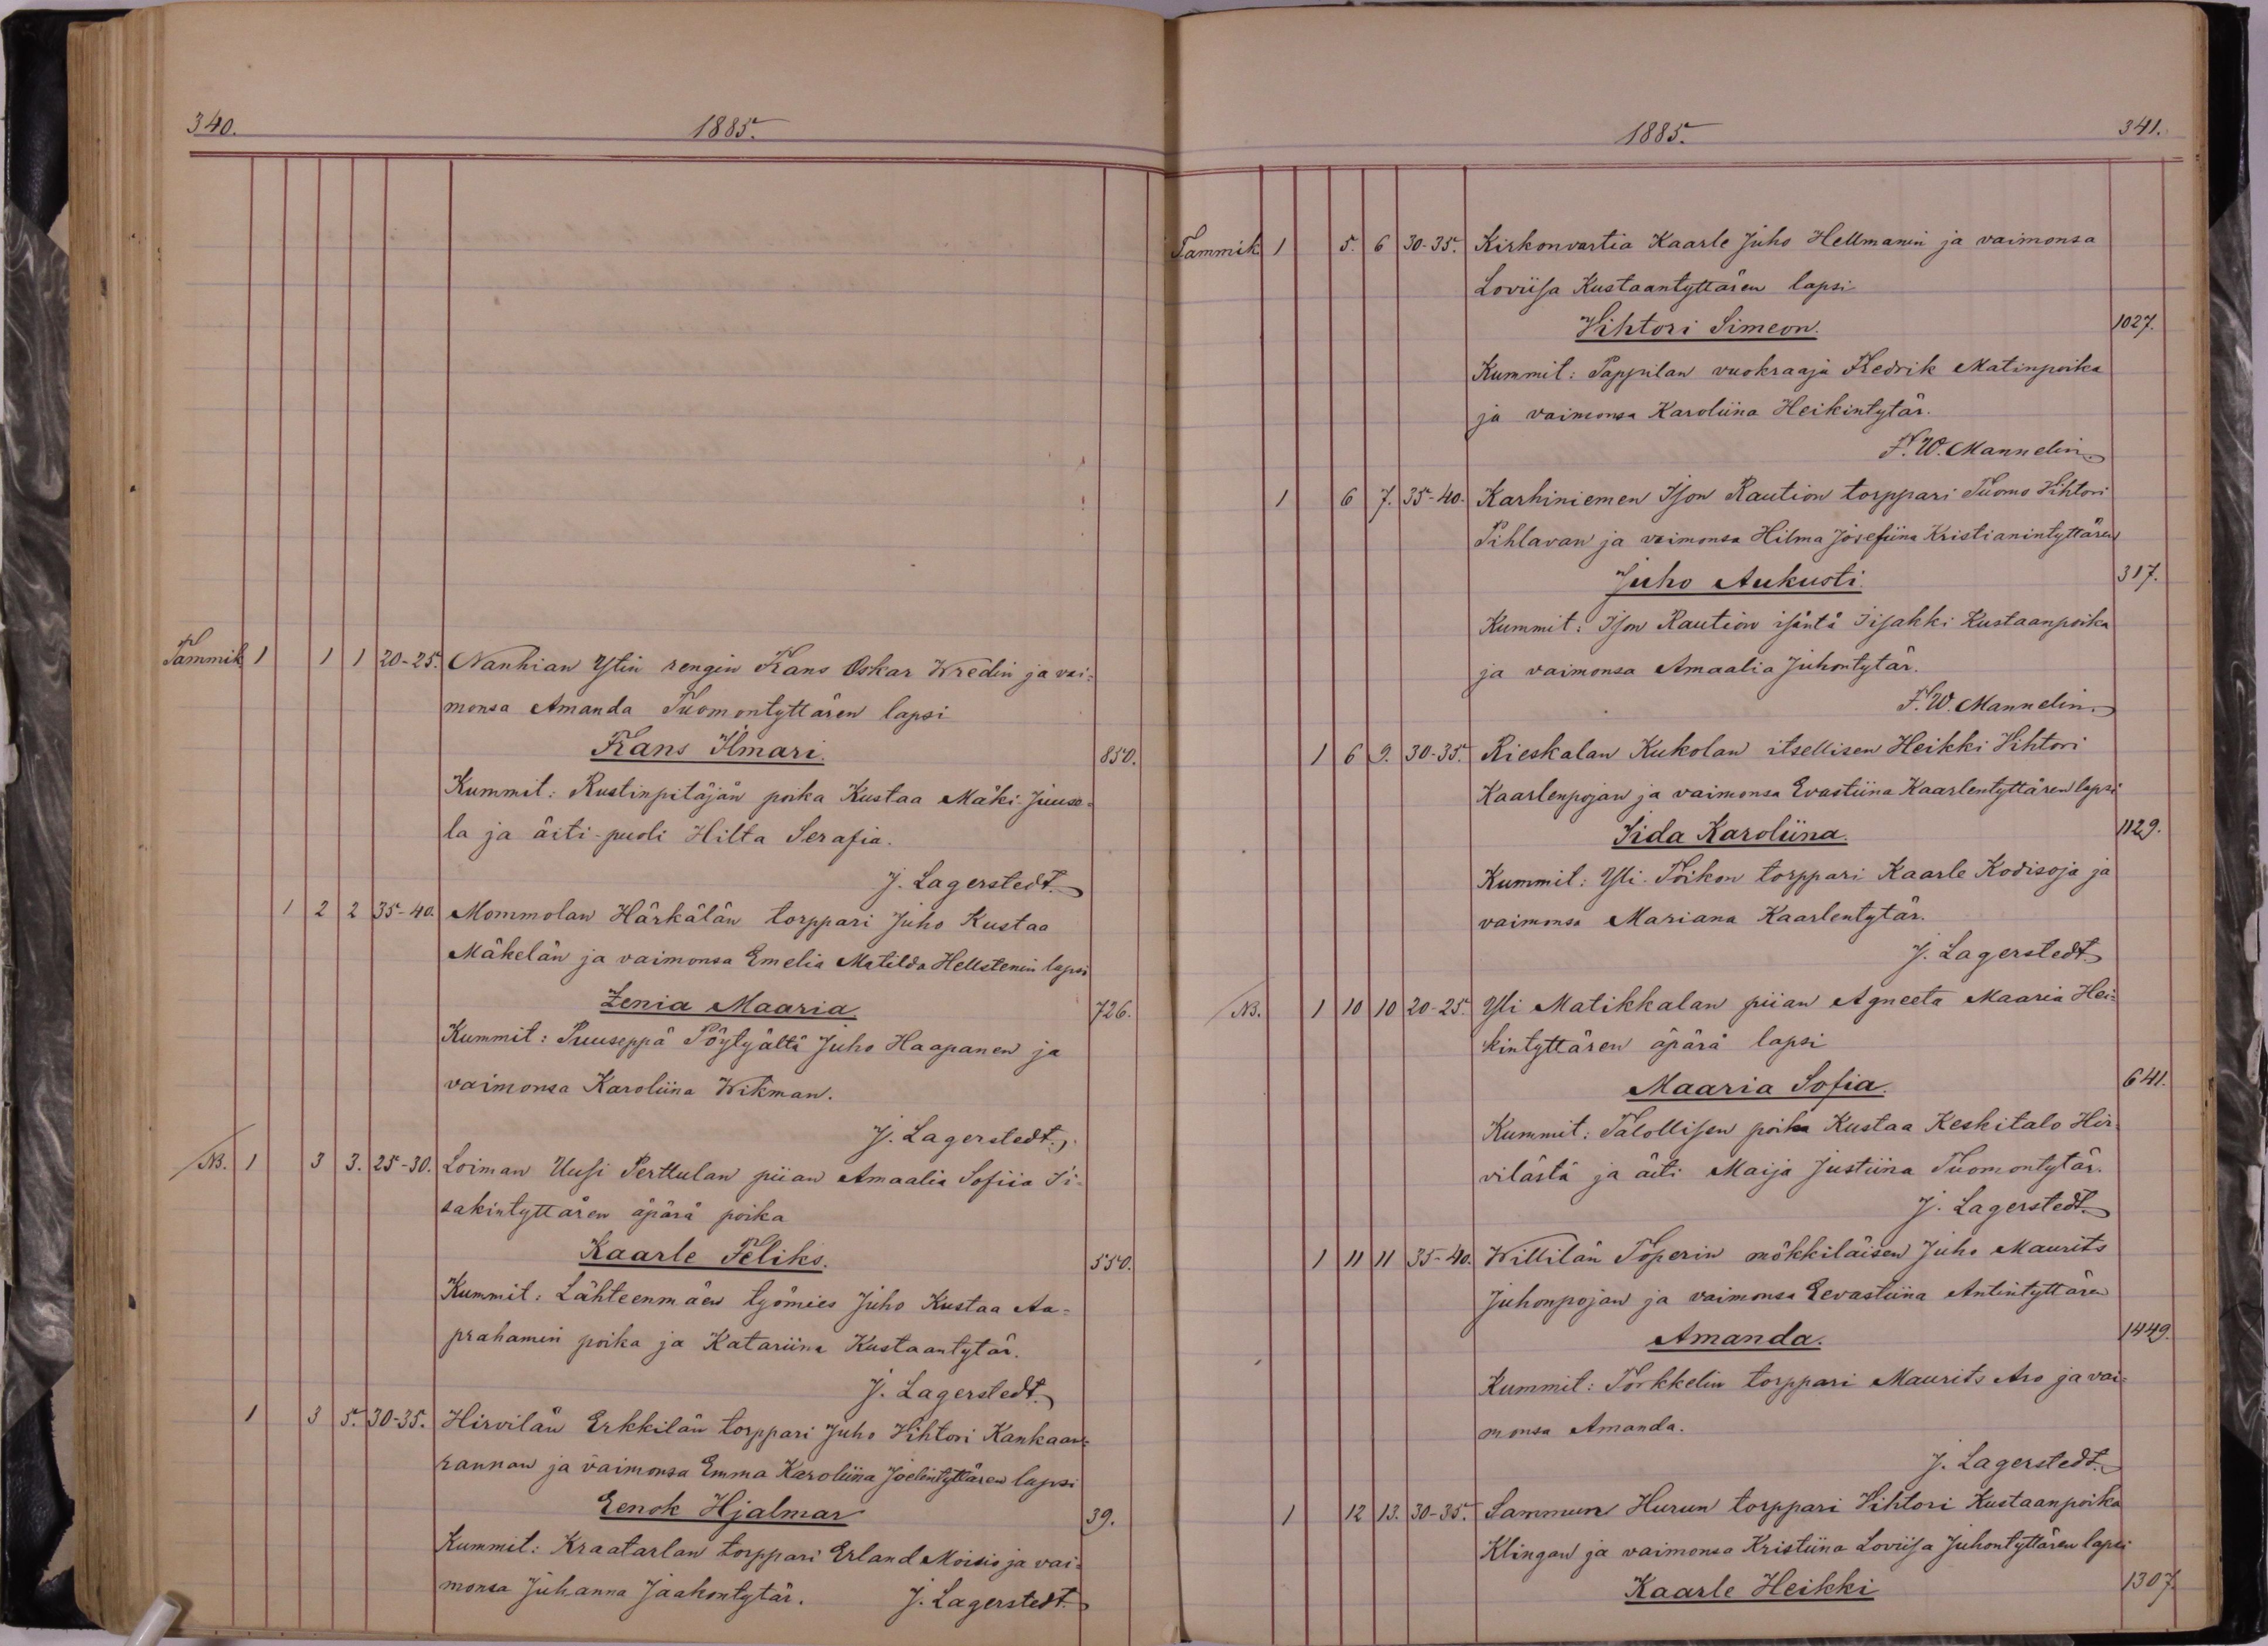 340.
1885.
Tammik 1 1 1 20-25. Nanhian Ylin rengin Frans Oskar Wredin ja vai=
monsa Amanda Tuomontyttären lapsi
Frans Ilmari. 850.
Kummit: Rustinpitäjän poika Kustaa Mäki-Juuso=
la ja äiti-puoli Hilta Serafia.
J. Lagerstedt.
1 2 2 35-40. Mommolan Härkälän torppari Juho Kustaa
Mäkelän ja vaimonsa Emelia Matilda Hellstenin lapsi
Zenia Maaria 726.
Kummit: Puuseppä Pöytyältä Juho Haapanen ja
vaimonsa Karoliina Wikman.
J. Lagerstedt.
NB. 1 3 3. 25-30. Loiman Uusi Perttulan piian Amaalia Sofiia Ii=
sakintyttären äpärä poika
Kaarle Feliks. 550.
Kummit: Lähteenmäen työmies Juho Kustaa Aa=
prahamin poika ja Katariina Kustaantytär.
J. Lagerstedt.
1 3 5. 30-35. Hirvilän Erkkilän torppari Juho Vihtori Kankaan=
rannan ja vaimonsa Emma Karoliina Joelintyttären lapsi
Eenok Hjalmar 39.
Kummit: Kraatarlan torppari Erland Moisio ja vai=
monsa Juhanna Jaakontytär. J. Lagerstedt.
1885.
341.
Tammik 1 5. 6 30-35. Kirkonvartia Kaarle Juho Hellmanin ja vaimonsa
Loviisa Kustaantyttären lapsi
Vihtori Simeon. 1027.
Kummit: Pappilan vuokraaja Fredrik Matinpoika
ja vaimonsa Karoliina Heikintytär.
F. W. Mannelin.
1 6 7. 35-40. Karhiniemen Ison Raution torppari Tuomo Vihtori
Pihlavan ja vaimonsa Hilma Josefiina Kristianintyttären
Juho Aukusti. 317.
Kummit: Ison Raution isäntä Iisakki Kustaanpoika
ja vaimonsa Amaalia Juhontytär.
F. W. Mannelin.
1 6 9. 30-35. Rieskalan Kukolan itsellisen Heikki Vihtori
Kaarlenpojan ja vaimonsa Evastiina Kaarlentyttären lapsi
Iida Karoliina. 1129.
Kummit: Yli-Toikon torppari Kaarle Kodisoja ja
vaimonsa Mariana Kaarlentytär.
J. Lagerstedt.
NB. 1 10 10 20-25. Yli Matikkalan piian Agneeta Maaria Hei=
kintyttären äpärä lapsi
Maaria Sofia. 641.
Kummit: Talollisen poika Kustaa Keskitalo Hir=
vilästä ja äiti Maija Justiina Tuomontytär.
J. Lagerstedt.
1 11 11 35-40. Willilän Toperin mökkiläisen Juho Maurits
Juhonpojan ja vaimonsa Eevastiina Antintyttären
Amanda. 1449.
Kummit: Torkkelin torppari Maurits Aro ja vai=
monsa Amanda.
J. Lagerstedt.
1 12 13. 30-35. Sammun Hurun torppari Vihtori Kustaanpoika
Klingan ja vaimonsa Kristiina Loviisa Juhontyttären lapsi
Kaarle Heikki 1307